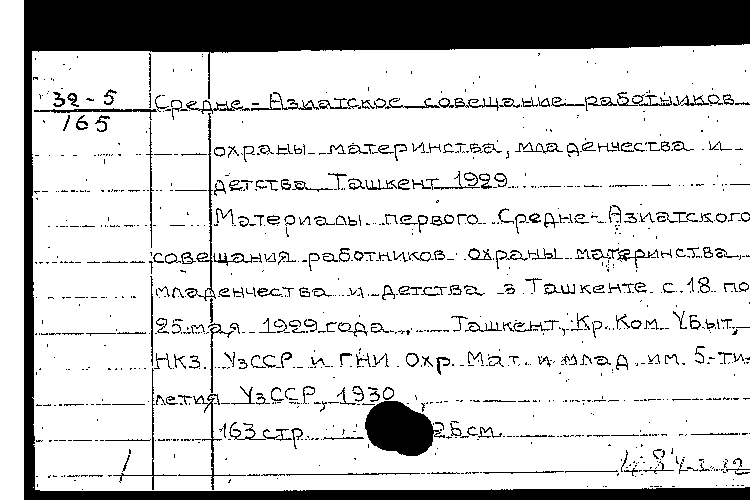 32-5
165
Средне-Азиатское совещание работников
охраны материнства, младенчества и
детства Ташкент 1929
Материалы первого Средне-Азиатского
совещания работников охраны материнства,
младенчества и детства в Ташкенте с 18 по
25 мая 1929 года. Ташкент, Кр. Ком. УБыт,
НКЗ. УзССР и ГНИ Охр. Мат. и млад. им. 5-ти-
летия УзССР, 1930
163 стр. 25 см.